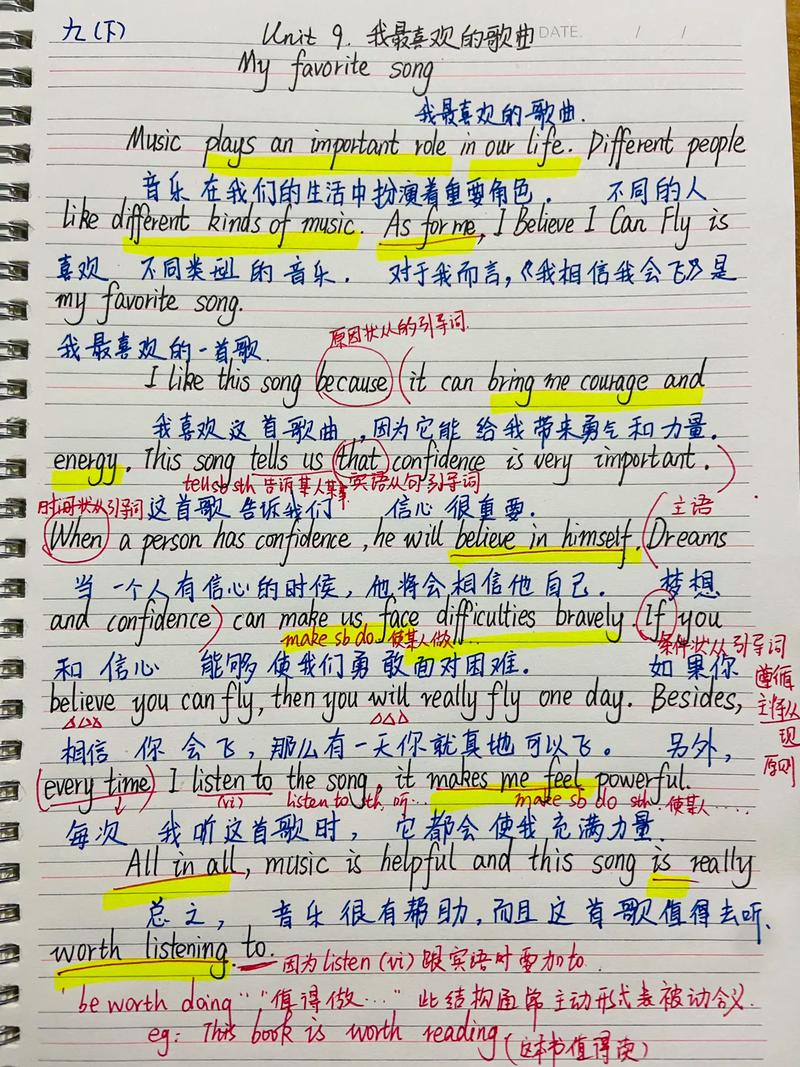 九(下) Unit 9. 我最喜欢的歌曲 DATE. / /
My favorite song
我最喜欢的歌曲.
Music plays an important role in our life. Different people
音乐在我们的生活中扮演着重要角色. 不同的人
like different kinds of music. As for me, I Believe I Can Fly is
喜欢 不同类型的音乐. 对于我而言,《我相信我会飞》是
my favorite song.
原因状从的引导词.
我最喜欢的一首歌.
I like this song because (it can bring me courage and
我喜欢这首歌曲,因为它能给我带来勇气和力量.
energy. This song tells us that confidence is very important.)
tell sb sth 告诉某人某事 宾语从句引导词
时间状从引导词 这首歌告诉我们 信心很重要. (主语
When a person has confidence, he will believe in himself. Dreams
当一个人有信心的时候,他将会相信他自己. 梦想
and confidence) can make us face difficulties bravely. If you
make sb do. 使某人做... 条件状从引导词
和信心 能够使我们勇敢面对困难. 如果你
遵循主将从现原则
believe you can fly, then you will really fly one day. Besides,
相信你会飞,那么有一天你就真地可以飞。 另外,
(every time) I listen to the song, it makes me feel powerful.
(vi) listen to sth. 听... make sb do sth. 使某人......
每次 我听这首歌时, 它都会使我充满力量.
All in all, music is helpful and this song is really
总之, 音乐很有帮助,而且这首歌值得去听.
worth listening to. 因为listen (vi) 跟宾语时要加to.
"be worth doing" "值得做..." 此结构通常主动形式表被动含义.
eg: This book is worth reading (这本书值得读)